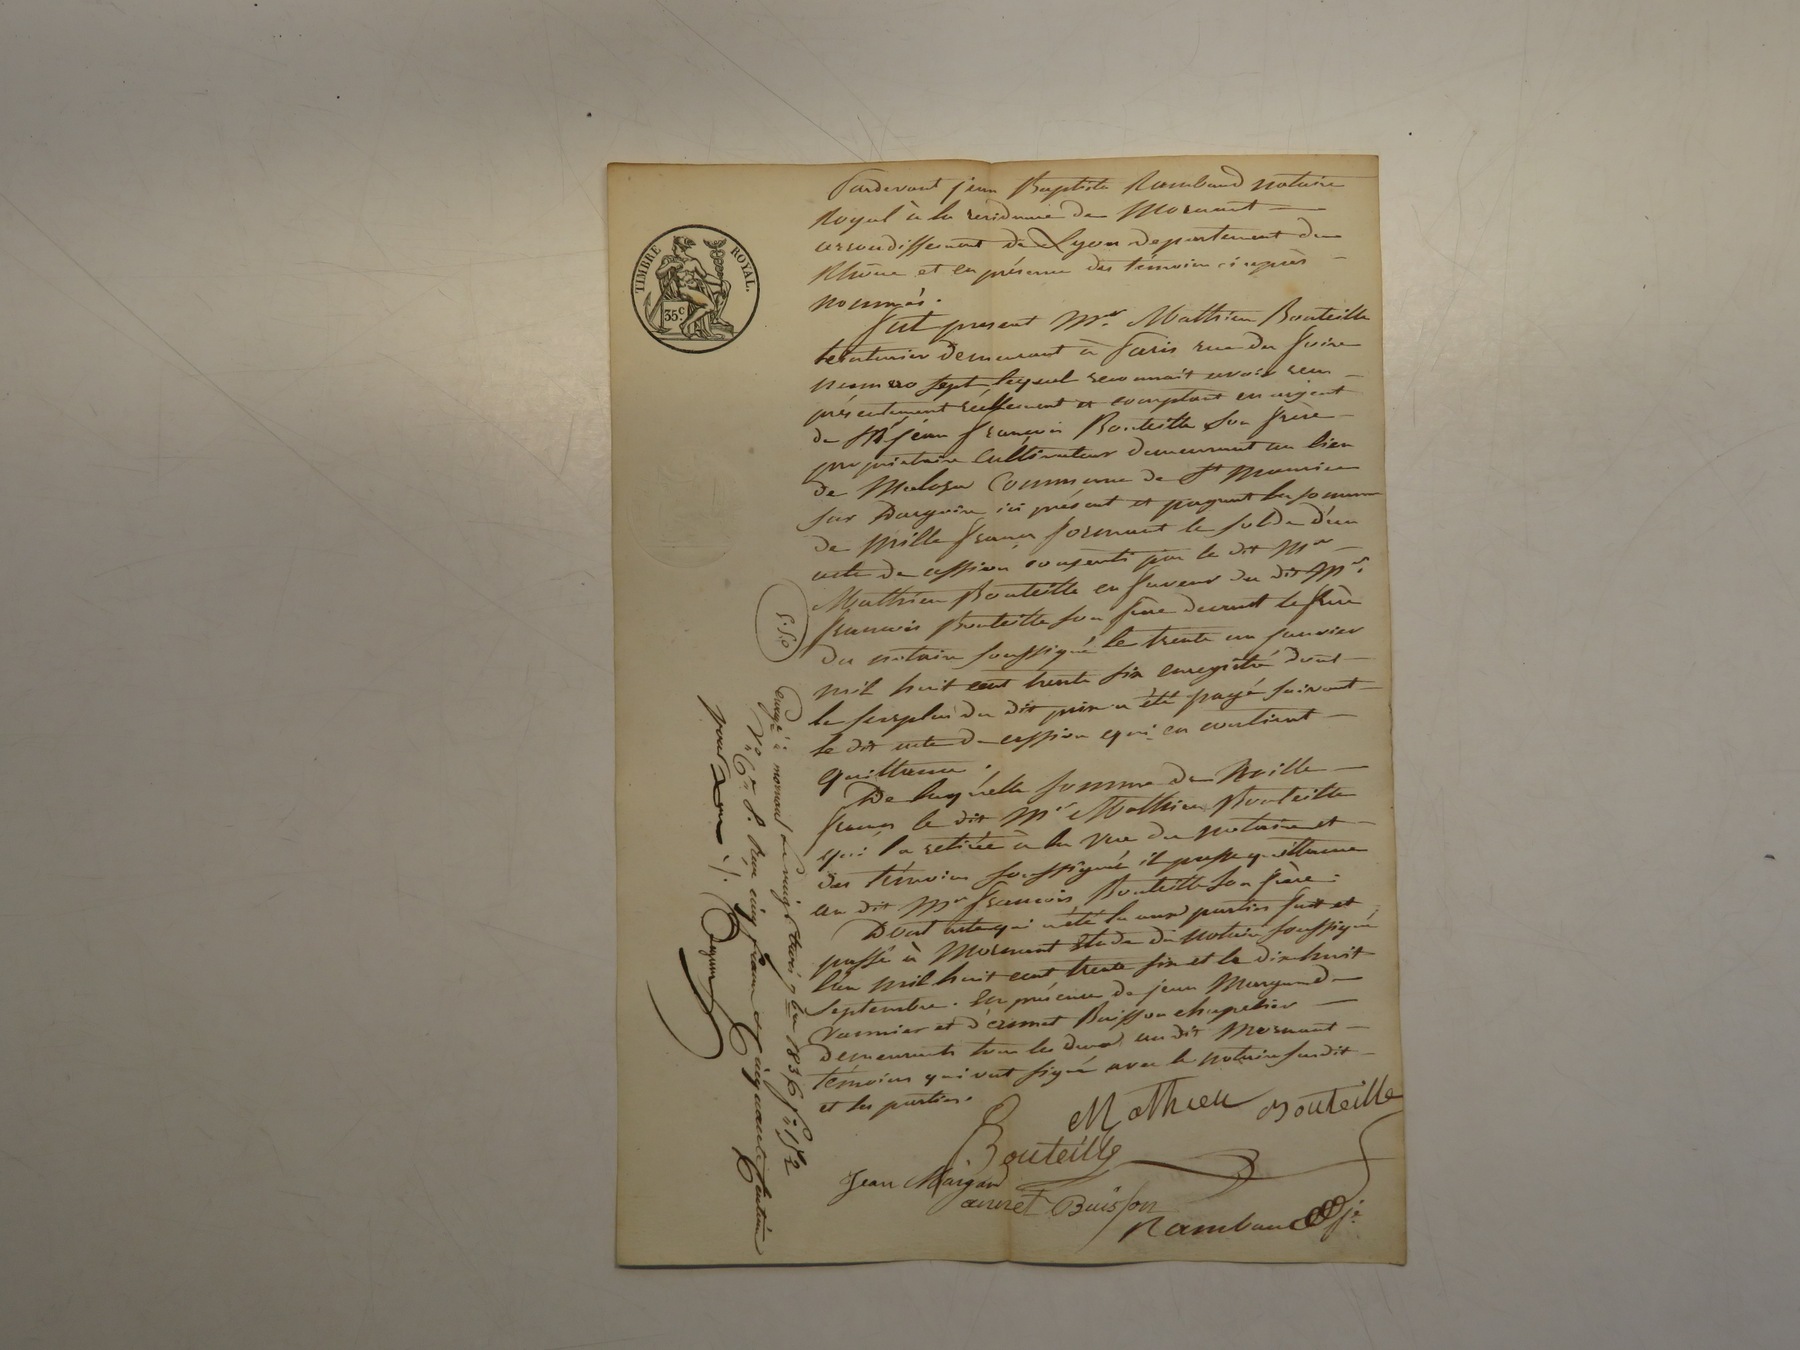 TIMBRE ROYAL.
35c
Pardevant jean Baptiste Rambaud notaire
Royal à la residence de Mornant
arrondissement de Lyon departement du
Rhône et en présence des témoins ci après
nommés.
fut present Mr. Mathieu Bouteille
teinturier demeurant à Paris rue du
numero sept lequel reconnait avoir reçu
présentement réellement et comptant en argent
de Mr jean françois Bouteille son frère
propriétaire cultivateur demeurant au lieu
de Commune de St Maurice
sur Dargoire ici présent et payant la somme
de Mille francs formant le solde d'un
acte de cession consenti par le dit Mr
Mathieu Bouteille en faveur du dit Mr.
françois Bouteille son frère devant le frère
du notaire soussigné le trente un janvier
mil huit cent trente six enregistré dont
le surplus du dit prix a été payé suivant
le dit acte de cession qui en contient
quittance.
De laquelle somme de Mille
francs le dit Mr Mathieu Bouteille
qui l'a retirée à la vue du notaire et
des témoins soussignés il passe quittance
au dit Mr françois Bouteille son frère.
Dont acte qui a été lu aux parties fait et
passé à Mornant étude du notaire soussigné
l'an mil huit cent trente six et le dix huit
septembre. En présence de jean Margand
vannier et d'ennet Buisson chapelier
demeurants tous les deux au dit Mornant
témoins qui ont signé avec le notaire susdit
et les parties.
Mathieu Bouteille
Bouteille
Jean Margand
Buisson
Rambaud
5.50
Enregé à mornant le vingt trois 7bre 1836 fo 152
Vo Co Rçu cinq francs et cinquante centimes
pour